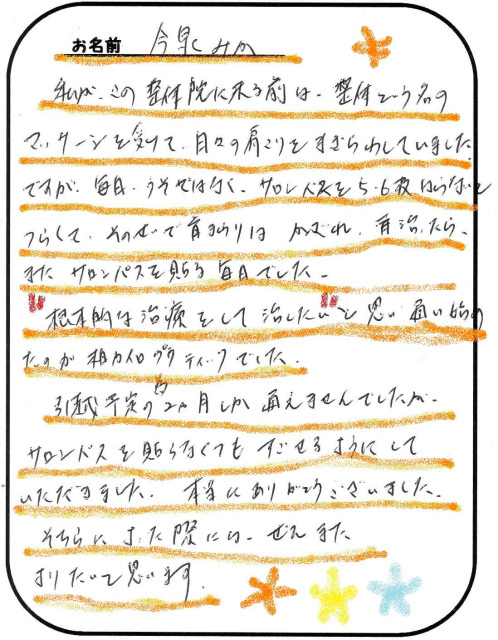 お名前 今泉 みか
私が、この整体院に来る前は、整体という名の
マッサージを受けて、日々の肩こりをまぎらわしていました。
ですが、毎日、うそではなく、サロンパスを5、6枚はらないと
つらくて、そのせいで肩まわりは かぶれ、 治ったら、
また サロンパスを貼る毎日でした。
"根本的な治療をして治したい"と思い 通い始め
たのが 相カイロプラティックでした。
引越予定の為2ヵ月しか 通えませんでしたが、
サロンパスを貼らなくても すごせるようにして
いただきました。 本当にありがとうございました。
そちらに よった際には、ぜひ また
よりたいと思います。